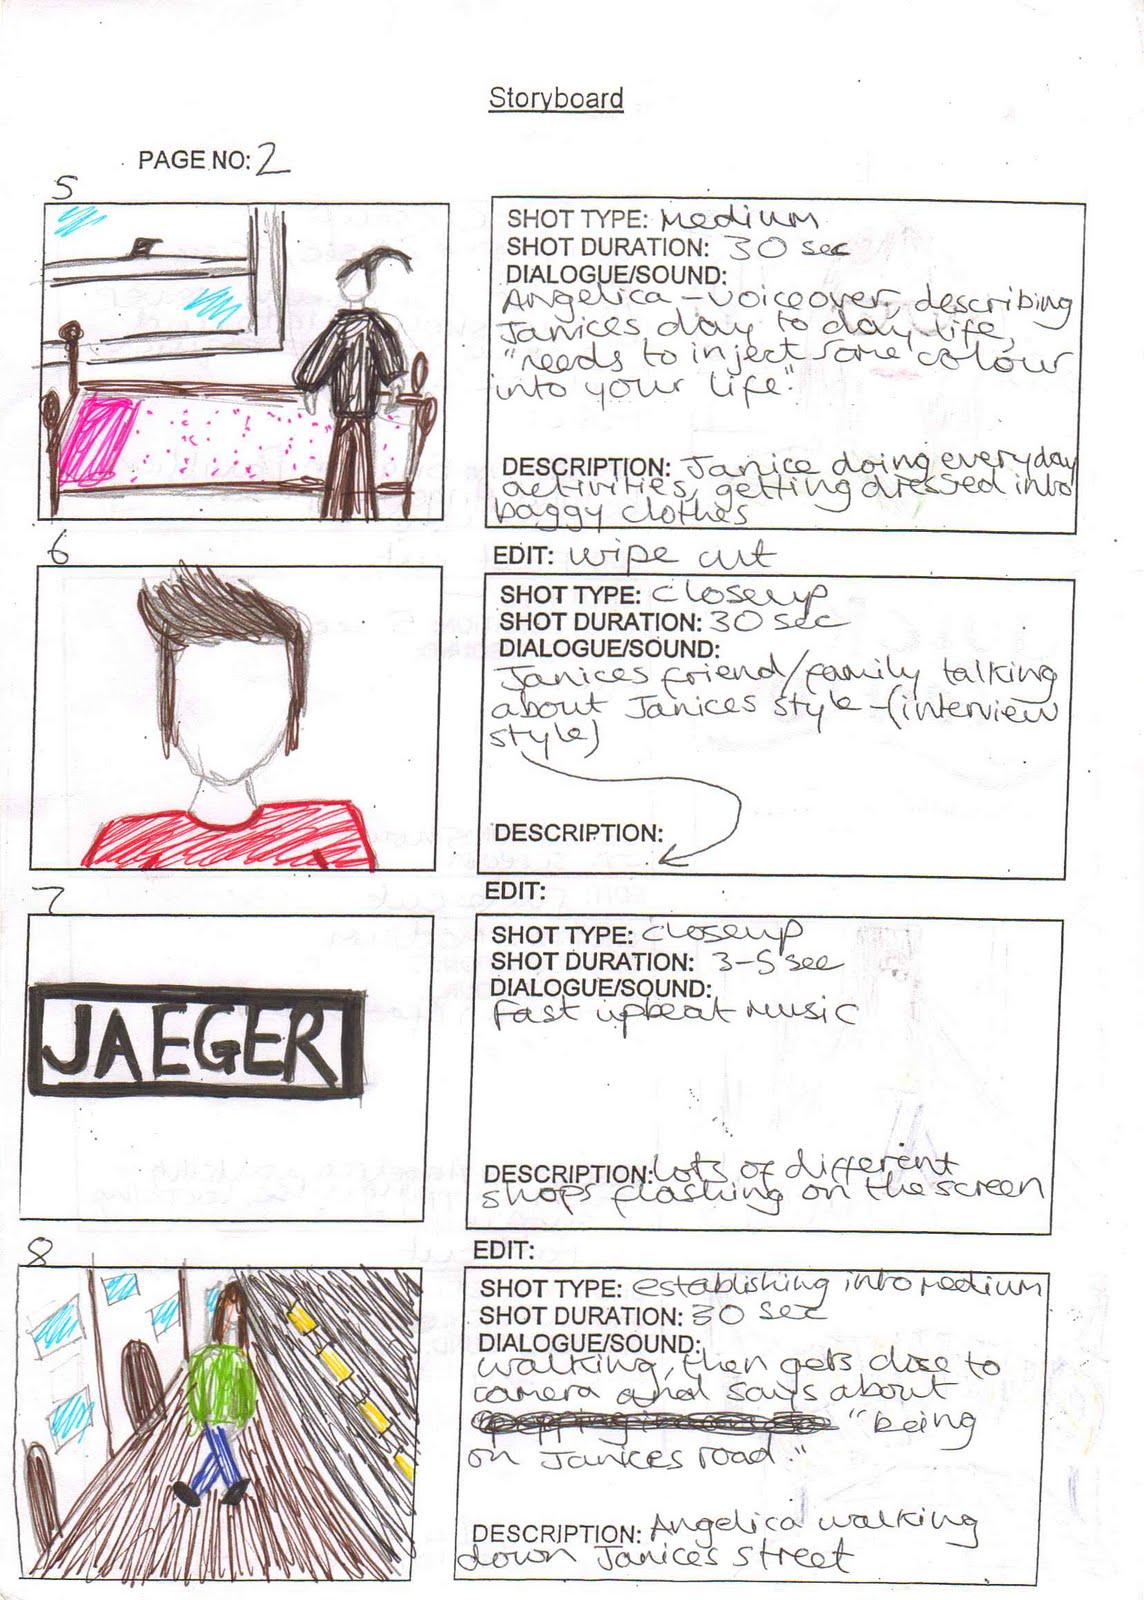 Storyboard
PAGE NO: 2
5
SHOT TYPE: Medium
SHOT DURATION: 30 sec
DIALOGUE/SOUND:
Angelica - voiceover, describing
Janices day to day life,
"needs to inject some colour
into your life".
DESCRIPTION: Janice doing everyday
activities, getting dressed into
baggy clothes
EDIT: wipe cut
6
SHOT TYPE: closeup
SHOT DURATION: 30 sec
DIALOGUE/SOUND:
Janices friend/family talking
about Janices style - (interview
style)
DESCRIPTION:
EDIT:
7
JAEGER
SHOT TYPE: closeup
SHOT DURATION: 3-5 sec
DIALOGUE/SOUND:
Fast upbeat music
DESCRIPTION: lots of different
shops flashing on the screen
EDIT:
8
SHOT TYPE: establishing into medium
SHOT DURATION: 30 sec
DIALOGUE/SOUND:
walking, then gets close to
camera and says about
"being
on Janices road."
DESCRIPTION: Angelica walking
down Janices street